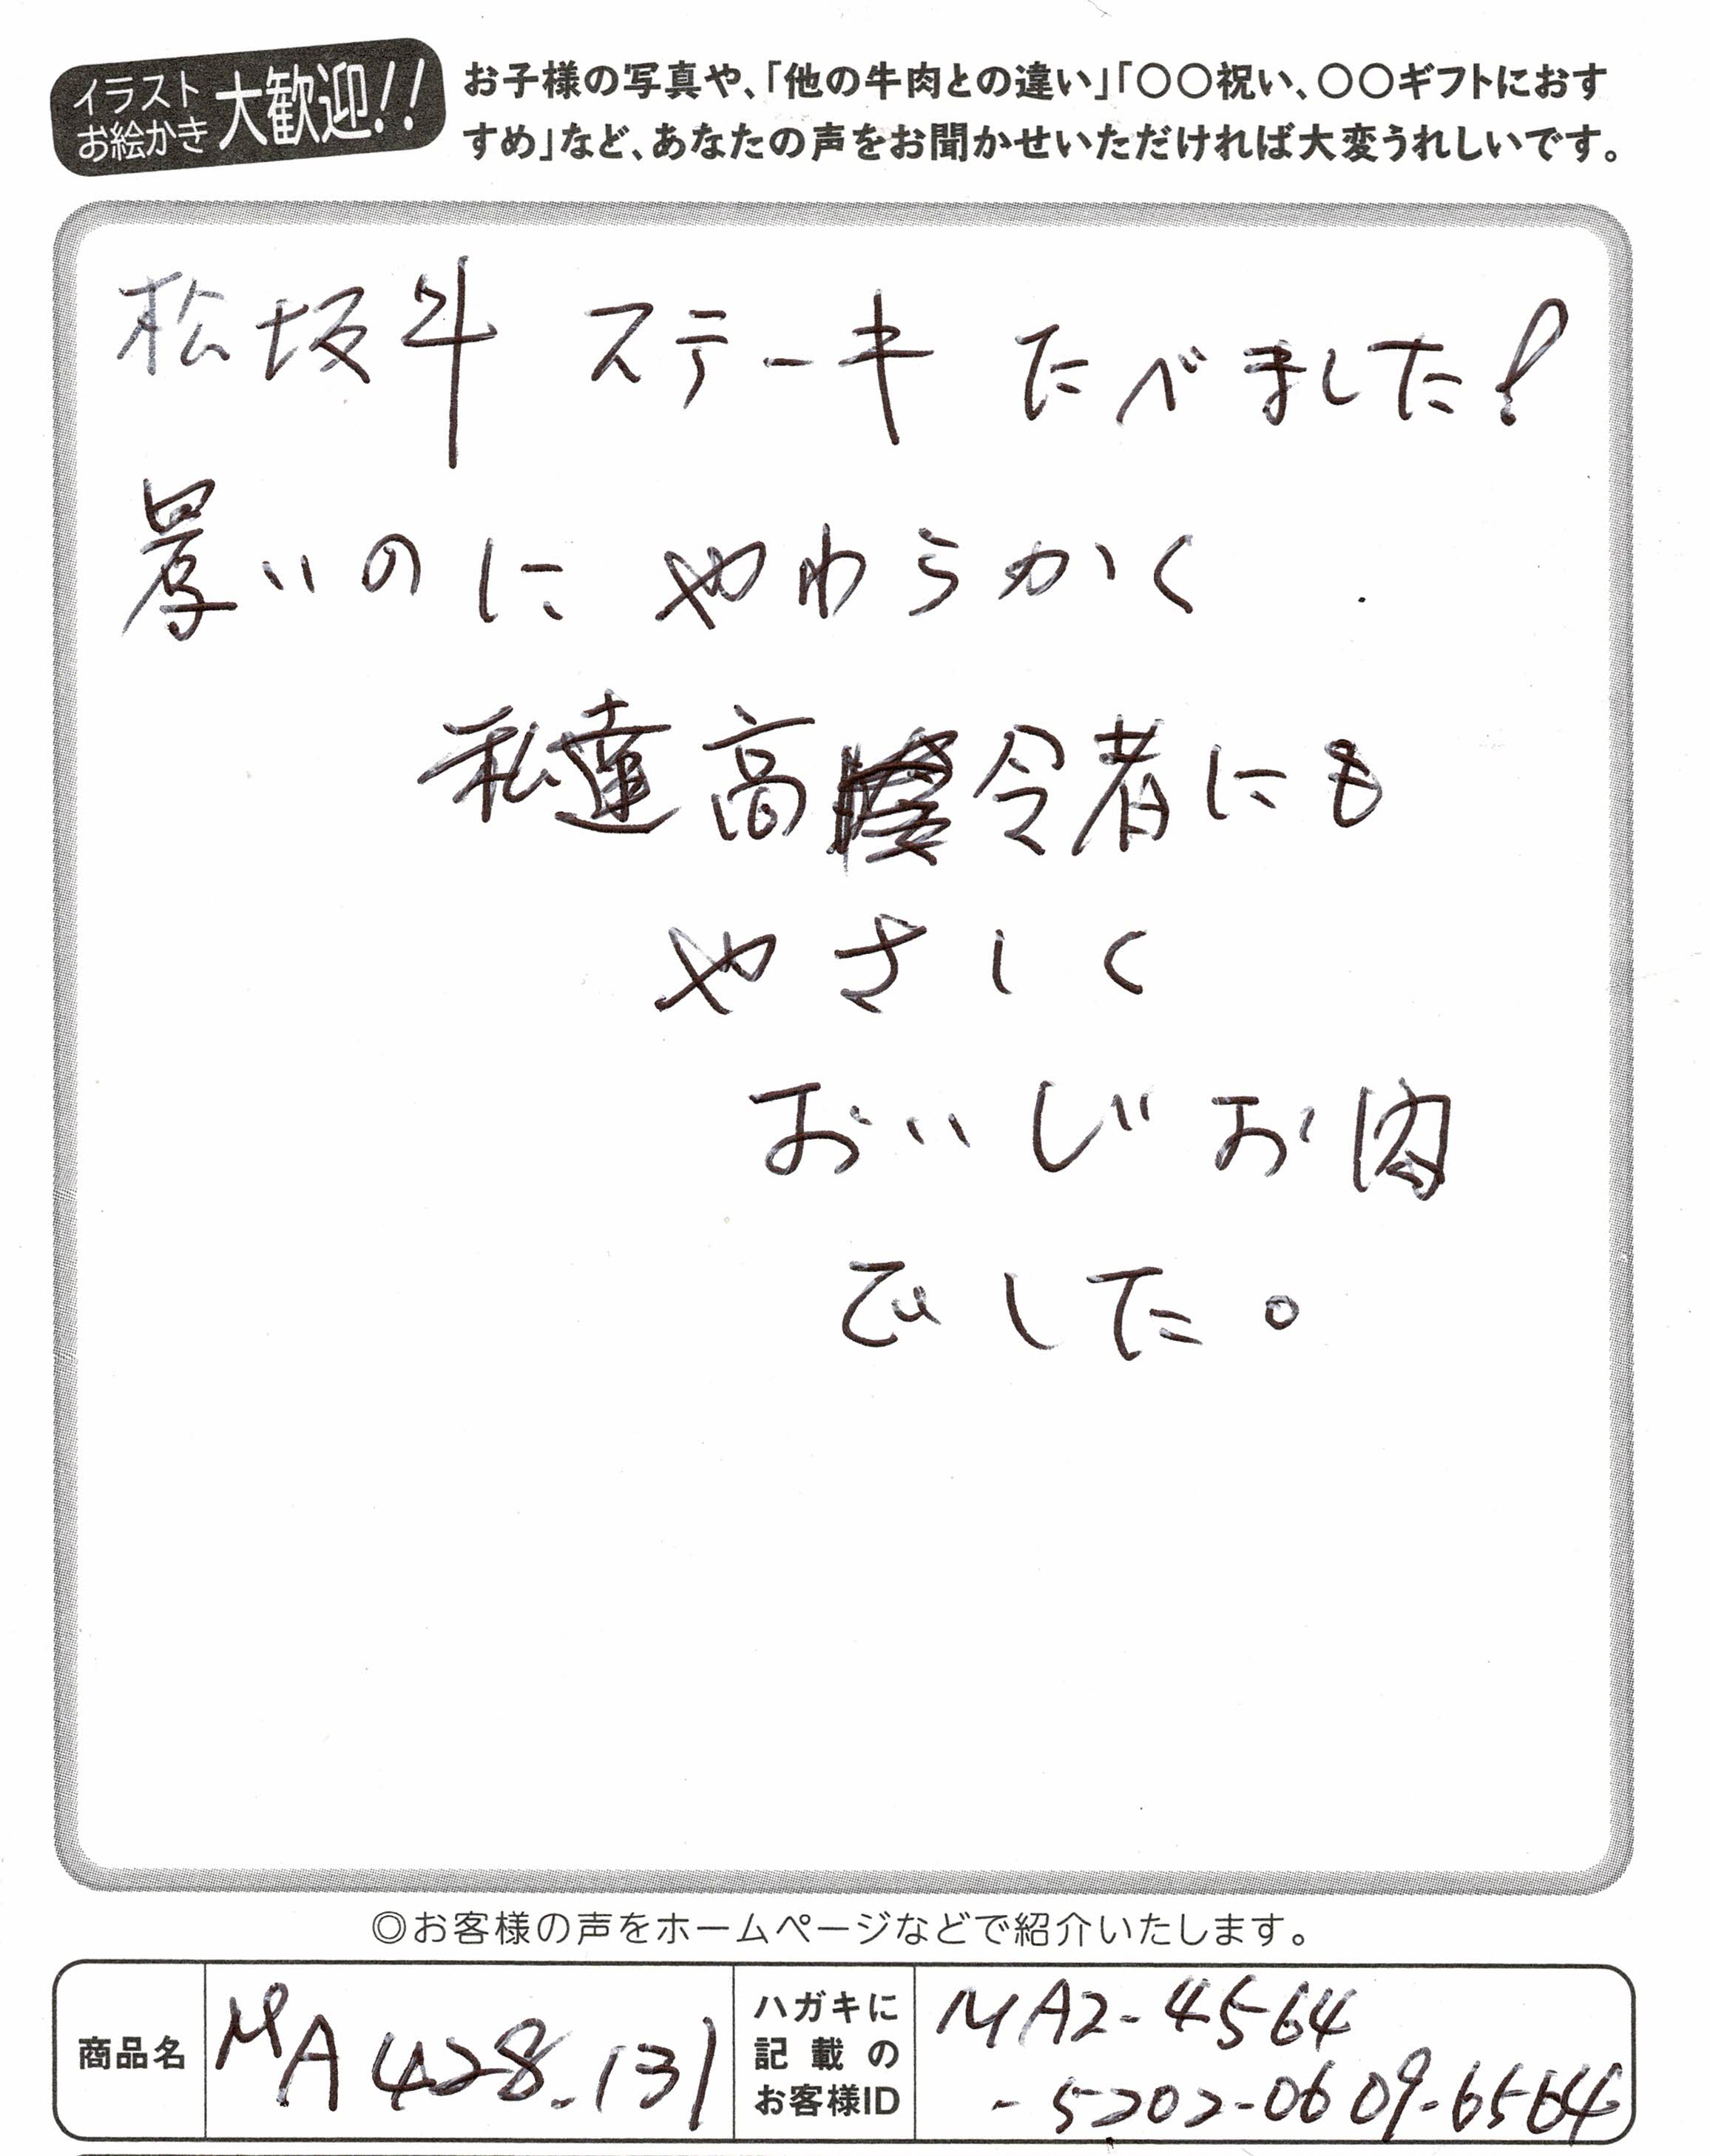 イラスト
お絵かき
大歓迎!!
お子様の写真や、「他の牛肉との違い」「〇〇祝い、〇〇ギフトにおす
すめ」など、あなたの声をお聞かせいただければ大変うれしいです。
松坂牛 ステーキ たべました!
厚いのに やわらかく
私達高令者にも
やさしく
おいしいお肉
でした。
◎お客様の声をホームページなどで紹介いたします。
商品名
MA428-131
ハガキに
記載の
お客様ID
MA2-4564
-5202-0609-6564